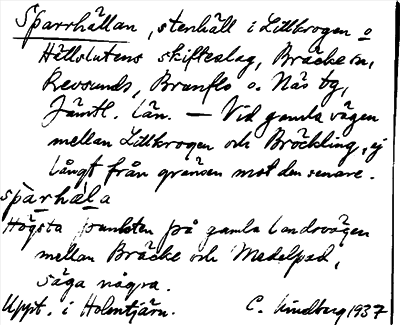 Sparrhällan, stenhäll i Lillkrogen o
Hällslutens skifteslag, Bräcke sn,
Revsunds, Brunflo o. Näs tg,
Jämtl. län. — Vid gamla vägen
mellan Lillkrogen och Bröckling, ej
långt från gränsen mot den senare.
spàrhæ̀la
Högsta punkten på gamla landsvägen
mellan Bräcke och Medelpad,
säga några.
Uppt. i Holmtjärn. C. Lindberg 1937